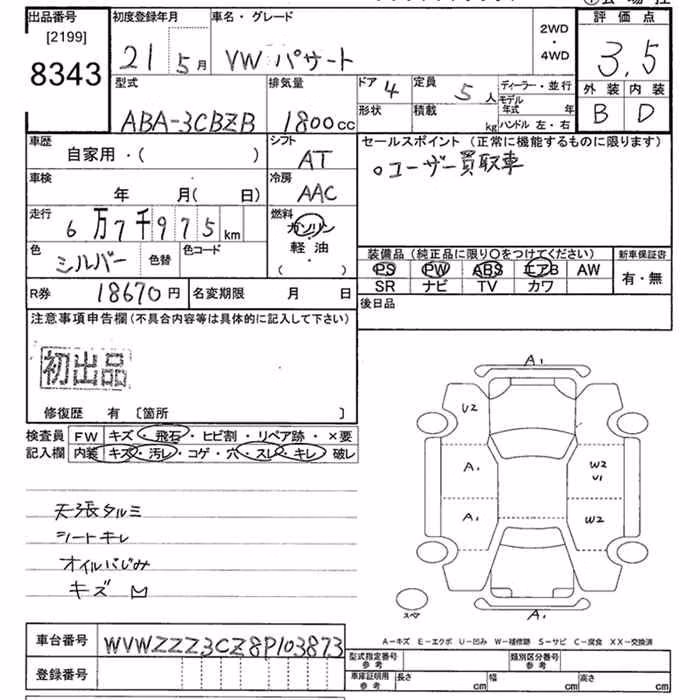 出品番号 初度登録年月 車名・グレード 2WD・4WD 評価点
[2199]
8343 21 5月 VW パサート 3.5
型式 排気量 ドア 4 定員 5人 ディーラー・並行 外装 内装
ABA-3CBZB 1800cc 形状 積載 kg モデル年式 年 ハンドル 左・右 B D
車歴 シフト セールスポイント (正常に機能するものに限ります)
自家用・( ) AT ○ユーザー買取車
車検 冷房
年 月( 日) AAC
走行 燃料
6万7千975km ガソリン
色 シルバー 色替 色コード 軽油・( )
装備品 (純正品に限り○をつけてください) 新車保証書
PS PW ABS エアB AW 有・無
SR ナビ TV カワ
R券 18670円 名変期限 月 日 後日品
注意事項申告欄 (不具合内容等は具体的に記入して下さい)
初出品
修復歴 有 〔箇所 〕
検査員 FW キズ・飛石・ヒビ割・リペア跡・×要
記入欄 内装 キズ・汚レ・コゲ・穴・スレ・キレ・破レ
天張タルミ
シートキレ
オイルにじみ
キズ 凹
A1
U2
A1 W2
U1
A1 W2
A1
スペア
A-キズ E-エクボ U-凹み W-補修跡 S-サビ C-腐食 XX-交換済
車台番号 WVWZZZ3CZ8P103873
登録番号
型式指定番号 参考 類別区分番号 参考
車庫証明用 参考 長さ cm 幅 cm 高さ cm